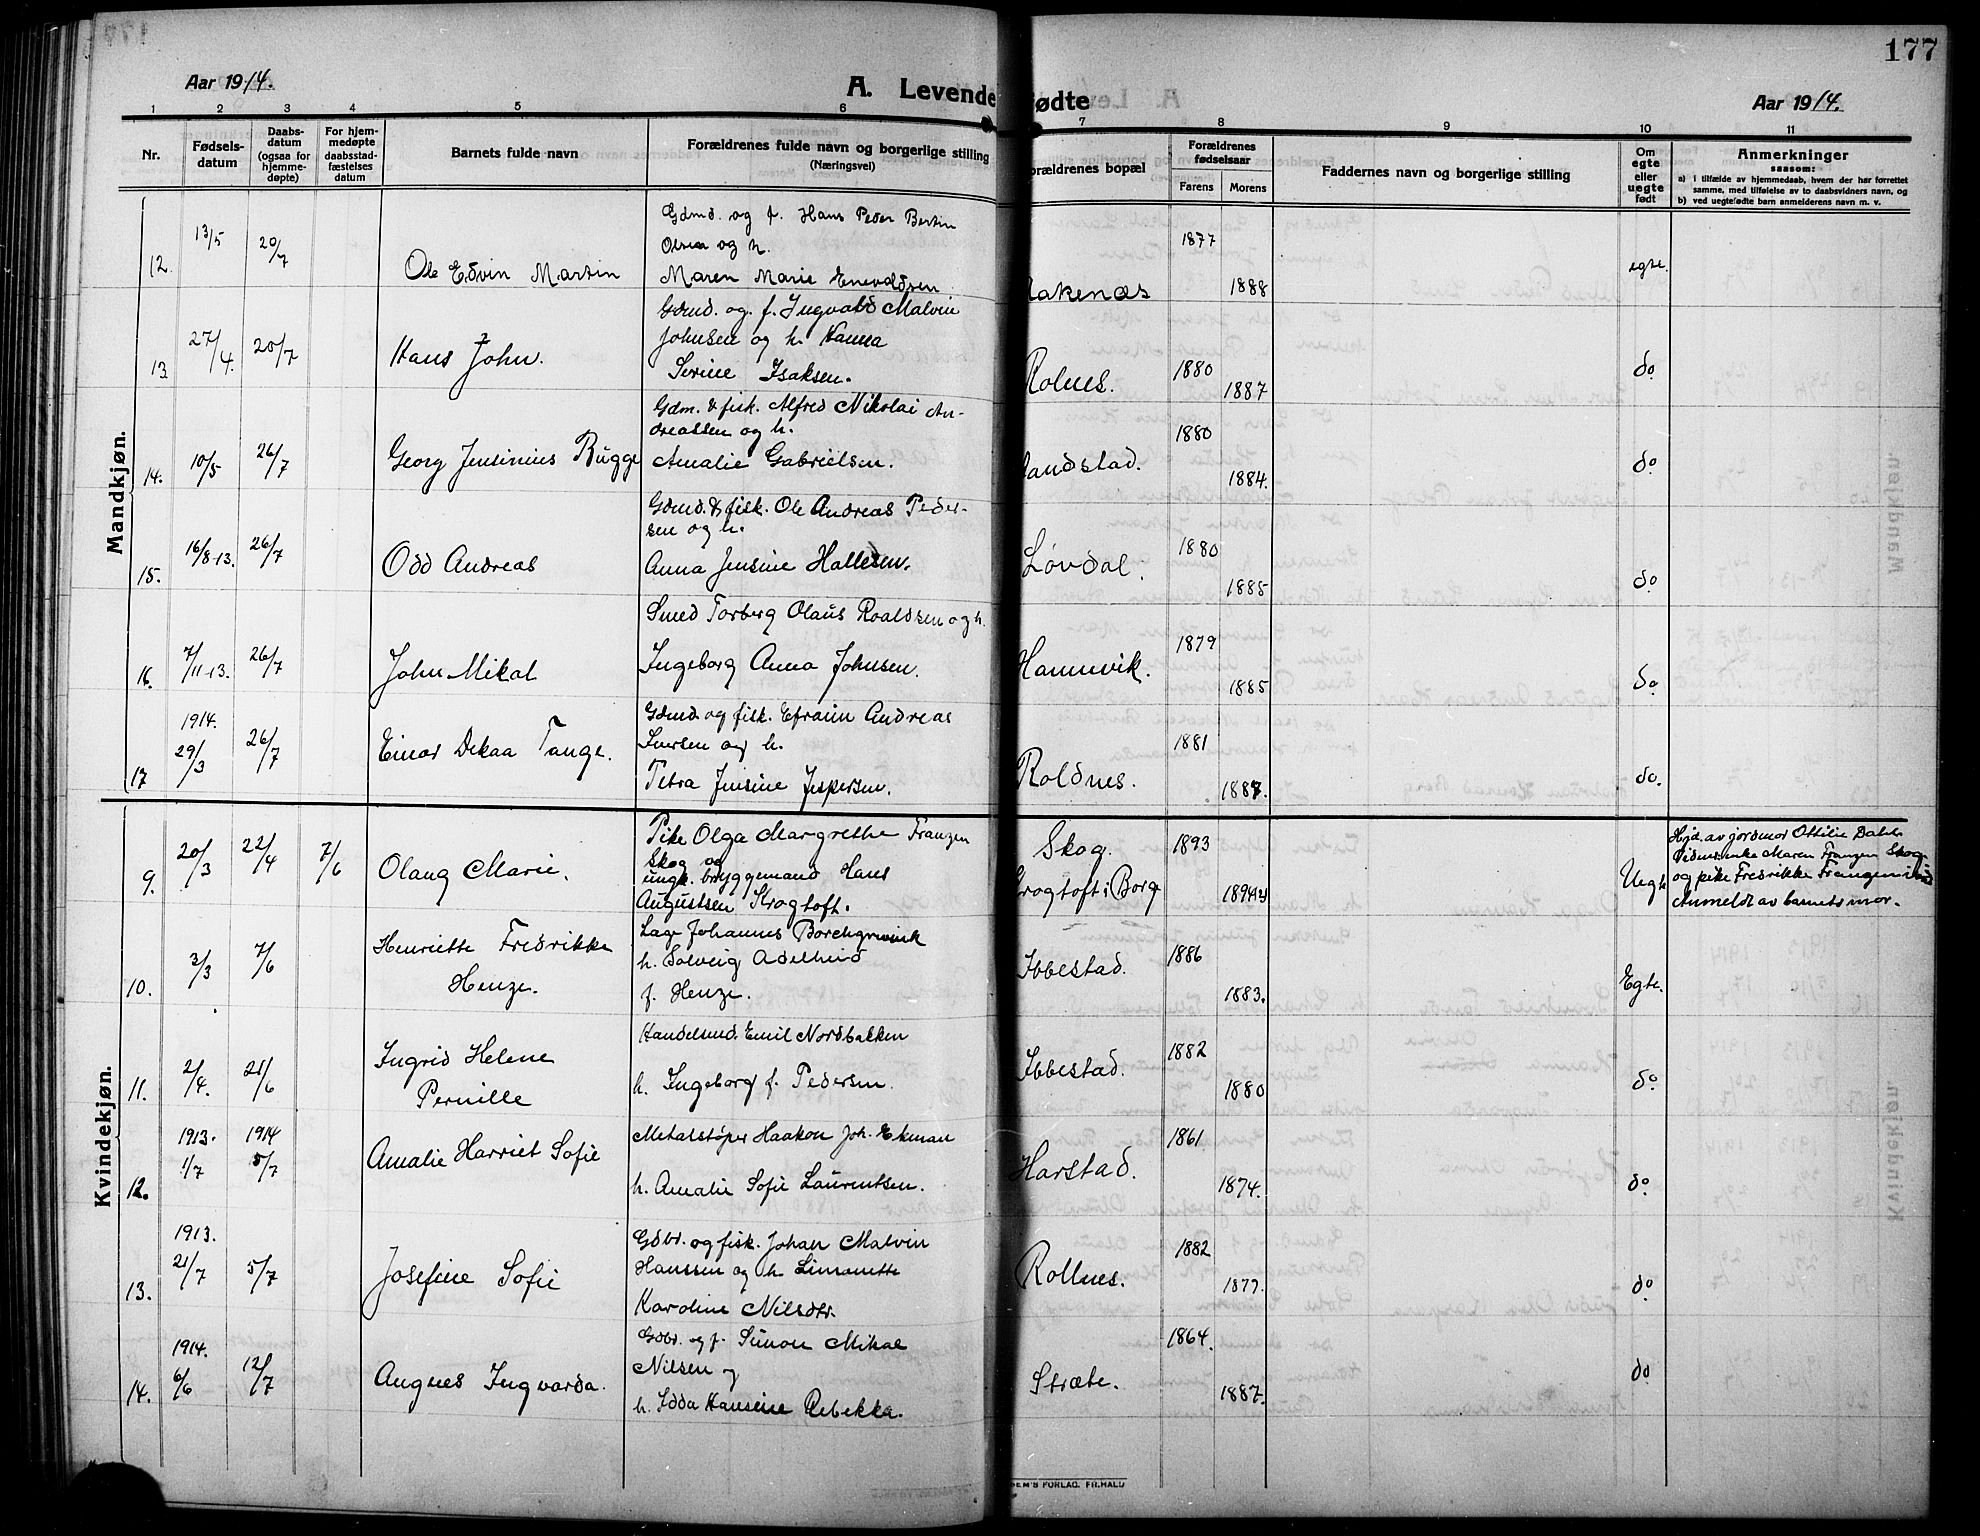 177
Aar 1914.
A. Levende
ødte
Aar 1914.
1 2 3 4 5 6 7 8 9 10 11
Nr.
Fødsels-
datum
Daabs-
datum
(ogsaa for
hjemme-
døpte)
For hjem-
medøpte
daabsstad-
fæstelses
datum
Barnets fulde navn
Forældrenes fulde navn og borgerlige stilling
(Næringsvei)
orældrenes bopæl
Forældrenes
fødselsaar
Farens Morens
Faddernes navn og borgerlige stilling
Om
egte
eller
uegte
født
Anmerkninger
saasom:
a) i tilfælde av hjemmedaab, hvem der har forrettet
samme, med tilføielse av to daabsvidners navn, og
b) ved uegtefødte barn anmelderens navn m. v.
Mandkjøn.
12. 13/5 20/7 Ole Edvin Martin
Gdmd. og f. Hans Peder Bertin
Olsen og h.
Maren Marie Enevoldsen
akenæs 1877 1888 egte.
13 27/4. 20/7 Hans John.
Gdmd. og. f. Ingvald Malvin
Johnsen og h. Hanna
Serine Isaksen.
Rolnes. 1880 1887 do
14. 10/5 26/7 Georg Jensinius Bugge
Gdm. & fisk. Alfred Nikolai An-
dreassen og h.
Amalie Gabrielsen.
andstad. 1880 1884. do
15. 16/8-13. 26/7 Odd Andreas
Gdmd. & fisk. Ole Andreas Peder-
sen og h.
Anna Jensine Hallesen.
Løvdal. 1880 1885 do
16. 7/11-13. 26/7 John Mikal
Smed Torberg Olaus Roaldsen og h.
Ingeborg Anna Johnsen.
Hamnvik. 1879 1885 do
17 1914. 29/3 26/7 Einar Dekaa Tange.
Gdmd. og fisk. Efraim Andreas
Iversen og h.
Petra Jensine Jespersen.
Roldnes. 1881 1887. do.
Kvindekjøn.
9. 20/3 22/4 7/6 Olaug Marie.
Pike Olga Margrethe Franzen
Skog og
ungk. bryggemand Hans
Augustsen Krogtoft.
Skog.
Krogtoft i Borge 1893 Uegte
Hjd. av jordmor Ottilie Dahl.
enke Maren Franzen Skog
og pike Fredrikke Franzen
Anmeldt av barnets mor.
10. 3/3 7/6 Henriette Fredrikke
Henze.
Johannes Borchgrevink
h. Solveig Adelheid
f. Henze.
Ibbestad. 1886 1883. Egte.
11. 2/4. 21/6 Ingrid Helene
Pernille
Handelsmd. Emil Nordbakken
h. Ingeborg f. Pedersen.
Ibbestad. 1882 1880 do
12. 1913. 1/7 1914 5/7 Amalie Harriet Sofie
Metalstøper Haakon Joh. Ekman
h. Amalie Sofie Laurentsen.
Harstad. 1861 1874. do
13. 1913. 21/7 5/7 Josefine Sofie
Gdbr. og fisk. Johan Malvin
Hanssen og h. Limonette
Karoline Nilsdtr.
Rollnes. 1882 1877. do
14. 1914. 6/6 12/7 Augnes Ingvarda.
Gdbr. og f. Simon Mikal
Nilsen og
h. Idda Hansine Rebekka.
Stræte. 1864. 1887. do
EM'S FORLAG. FR.HALD